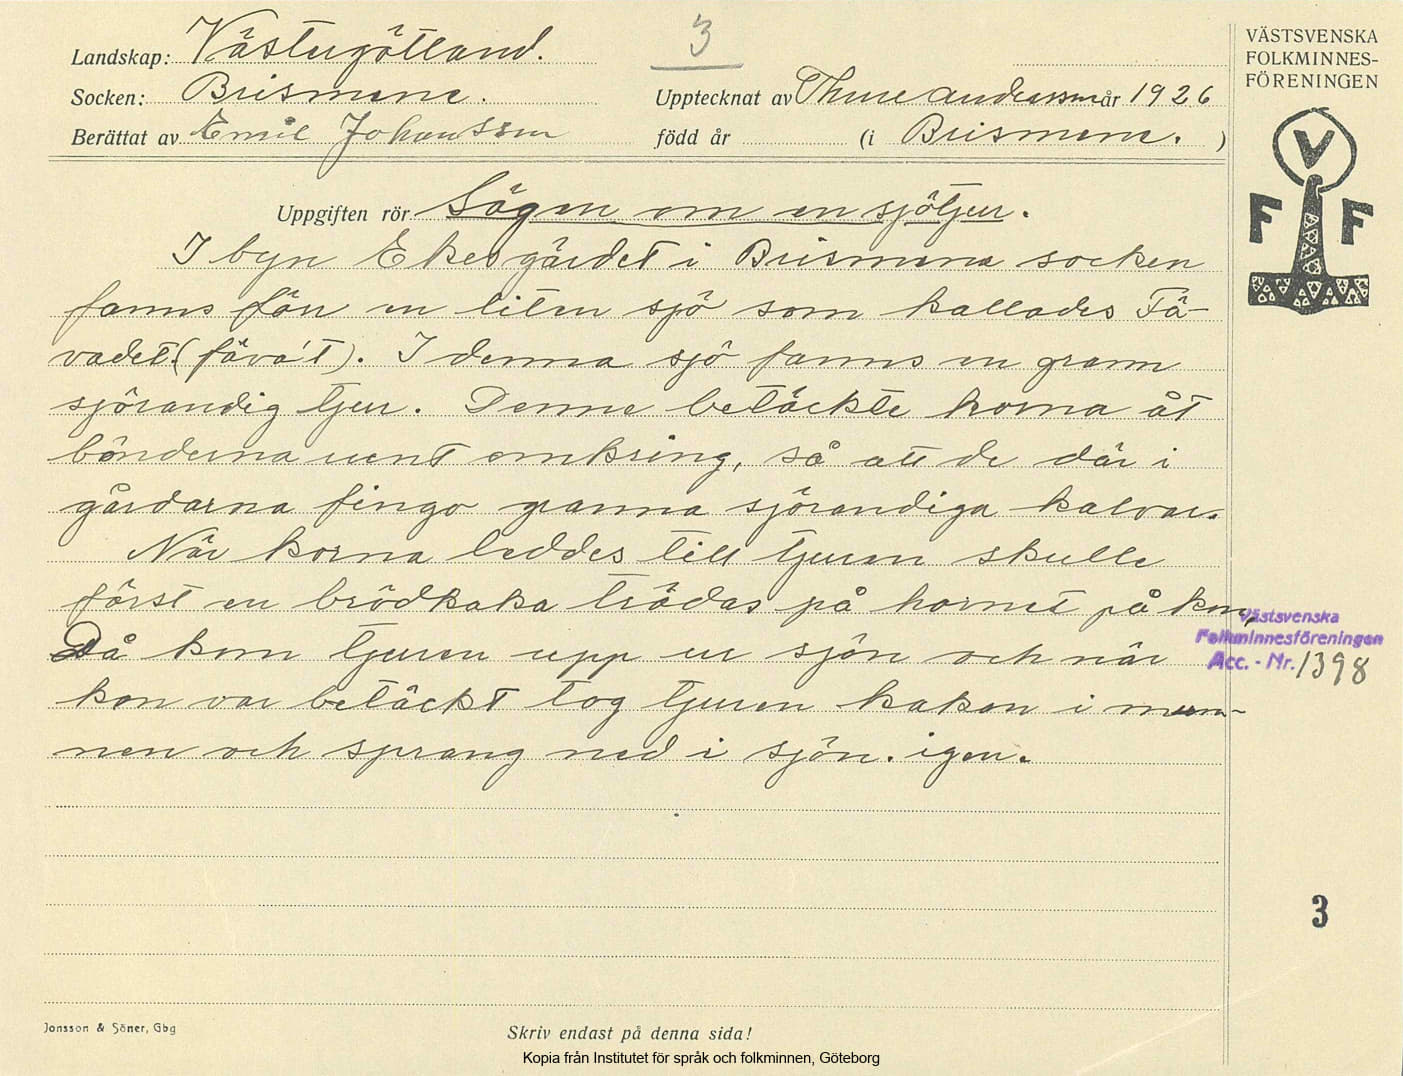 3
Landskap: Västergötland.
Socken: Brismene.
Upptecknat av Thure Andersson år 1926
Berättat av Emil Johansson
född år (i Brismene. )
VÄSTSVENSKA
FOLKMINNES-
FÖRENINGEN
V
F F
Uppgiften rör Sägen om en sjötjur.
I byn Ekesgärdet i Brismena socken
fanns förr en liten sjö som kallades Fä-
vadet. (fäva't). I denna sjö fanns en grann
sjörandig tjur. Denne betäckte korna åt
bönderna runt omkring, så att de där i
gårdarna fingo granna sjörandiga kalvar.
När korna leddes till tjuren skulle
först en brödkaka trädas på hornet på kon,
Då kom tjuren upp ur sjön och när
kon var betäckt tog tjuren kakan i mun-
nen och sprang ned i sjön. igen.
Västsvenska
Folkminnesföreningen
Acc. - Nr. 1398
3
Jonsson & Söner, Gbg
Skriv endast på denna sida!
Kopia från Institutet för språk och folkminnen, Göteborg